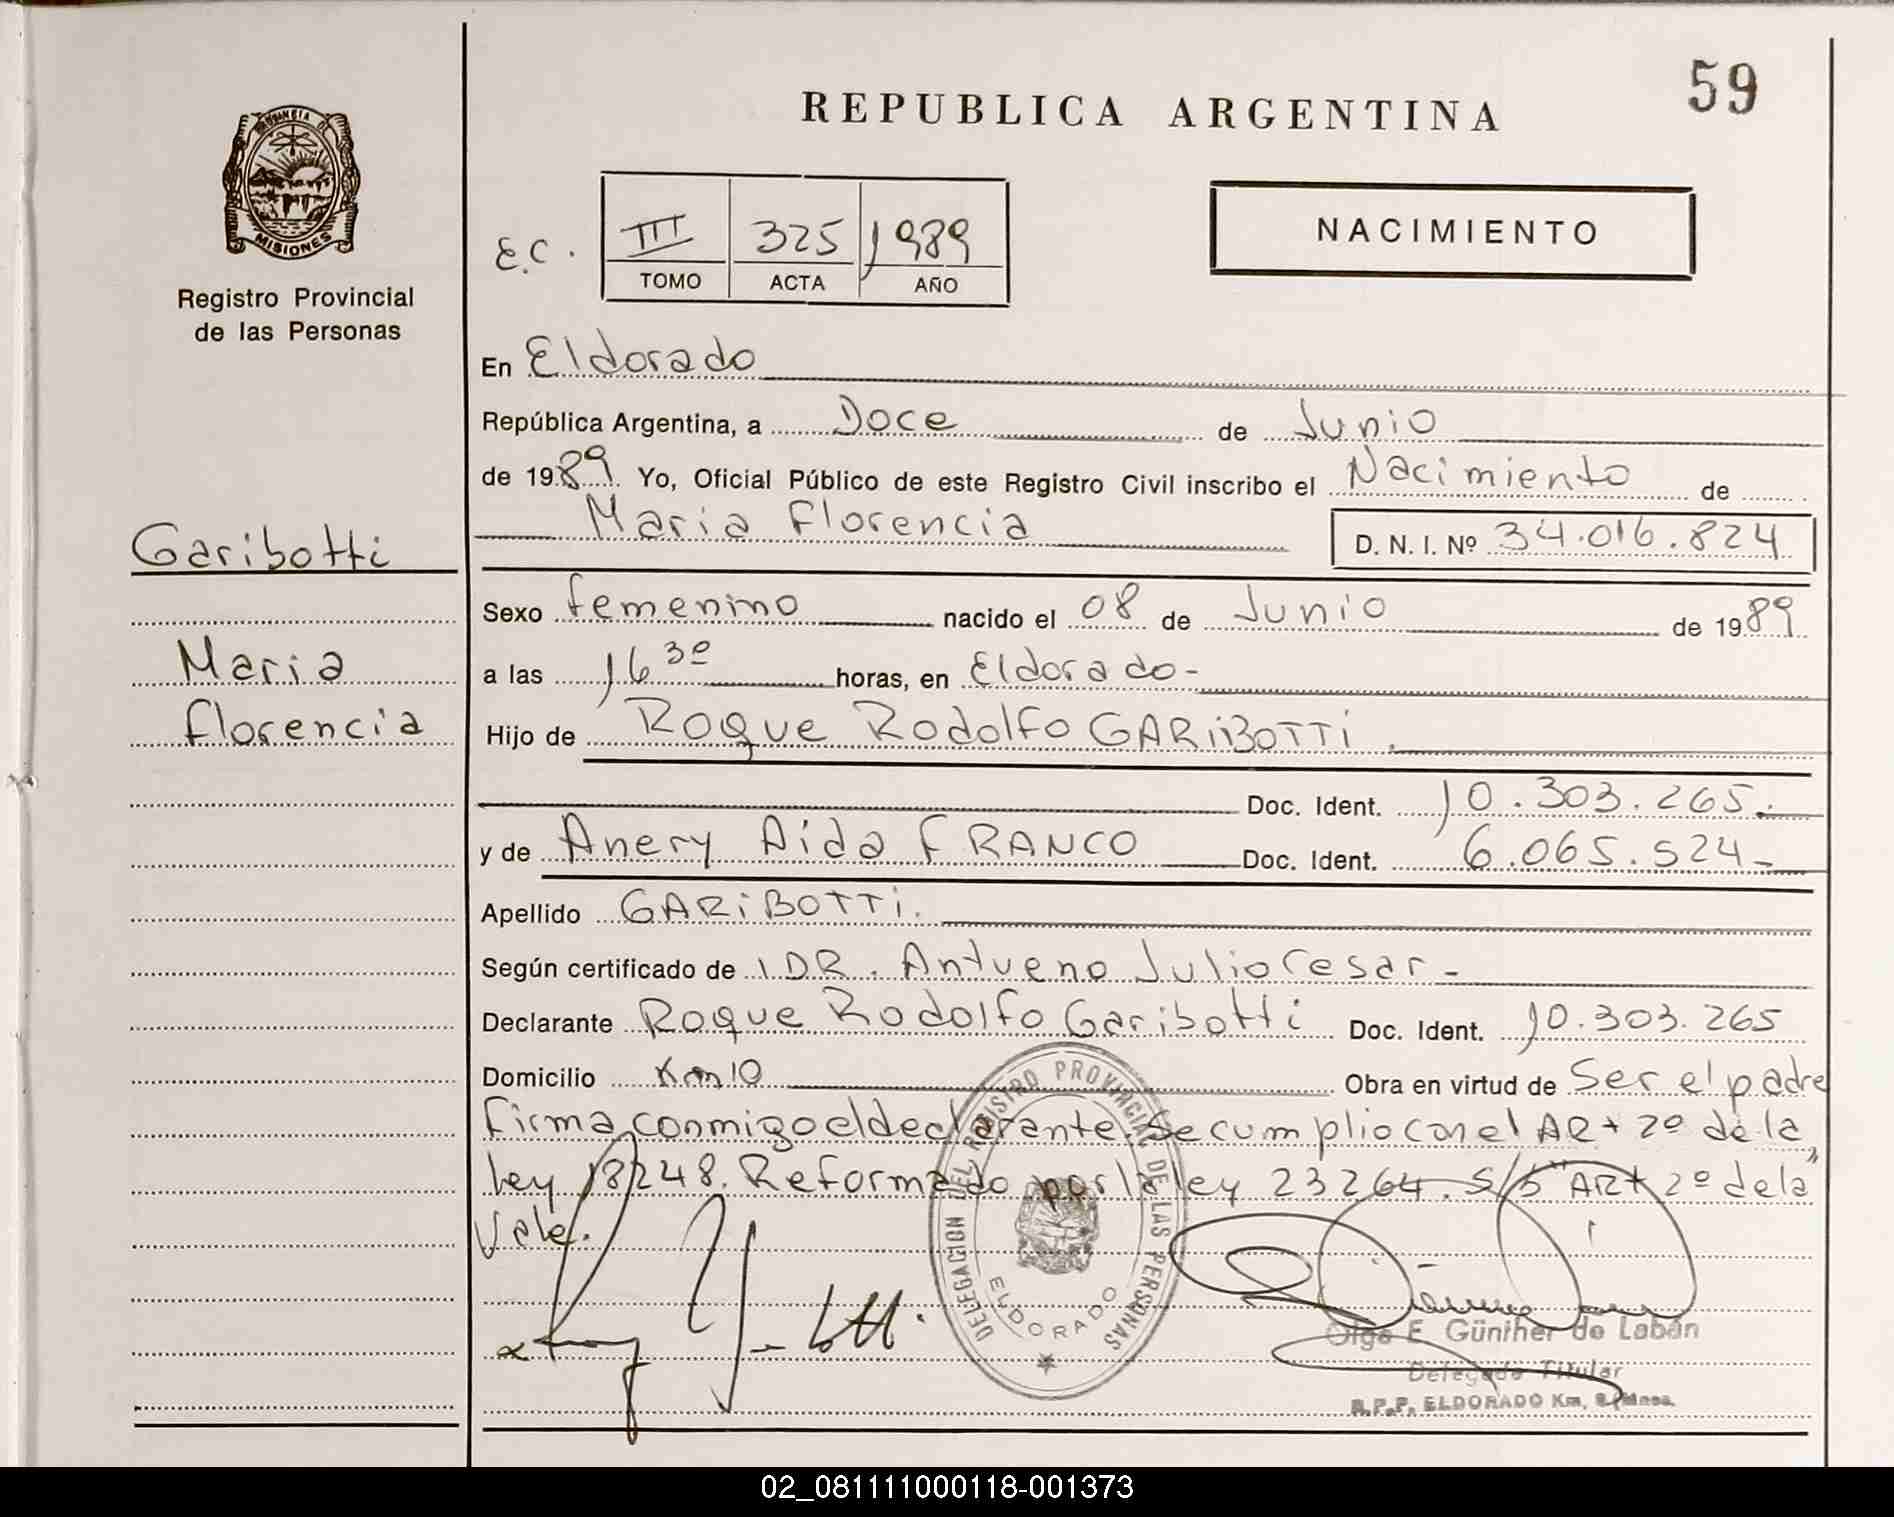 59
REPUBLICA ARGENTINA
PROVINCIA DE
MISIONES
Registro Provincial
de las Personas
NACIMIENTO
E.C. III 325 1989
TOMO ACTA AÑO
En Eldorado
República Argentina, a Doce de Junio
de 1989 Yo, Oficial Público de este Registro Civil inscribo el Nacimiento de
Maria Florencia D. N. I. Nº 34.016.824
Garibotti
Maria
Florencia
Sexo femenino nacido el 08 de Junio de 1989
a las 16 30 horas, en Eldorado-
Hijo de Roque Rodolfo GARiBOTTi.
Doc. Ident. 10.303.265.-
y de Anery Aida FRANCO Doc. Ident. 6.065.524-
Apellido GARiBOTTi.
Según certificado de DR. Antueno Julio Cesar-
Declarante Roque Rodolfo Garibotti Doc. Ident. 10.303.265
Domicilio Km 10 Obra en virtud de Ser el padre
Firma conmigo el declarante. Se cumplio con el ARt 2º de la
Ley 18248. Reformado por la ley 23264. S/S "ARt 2º de la"
Vale.
DELEGACION DEL REGISTRO PROVINCIAL DE LAS PERSONAS
ELDORADO
Olga E. Günther de Labán
Delegada Titular
R.P.P. ELDORADO Km. 9. Mnes.
02_081111000118-001373